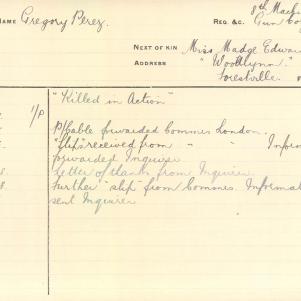 NAME Gregory Perez.
REG. &C. 8th Machi
Gun Coy
NEXT OF KIN Miss Madge Edwar
ADDRESS "Woodlynn"
Forestville.
"Killed in Action"
1/P
P/Cable forwarded Commrs London.
"Slip" received from " " Inform
forwarded Inquirer.
Letter of thanks from Inquirer.
Further "slip" from Commrs. Informat
sent Inquirer